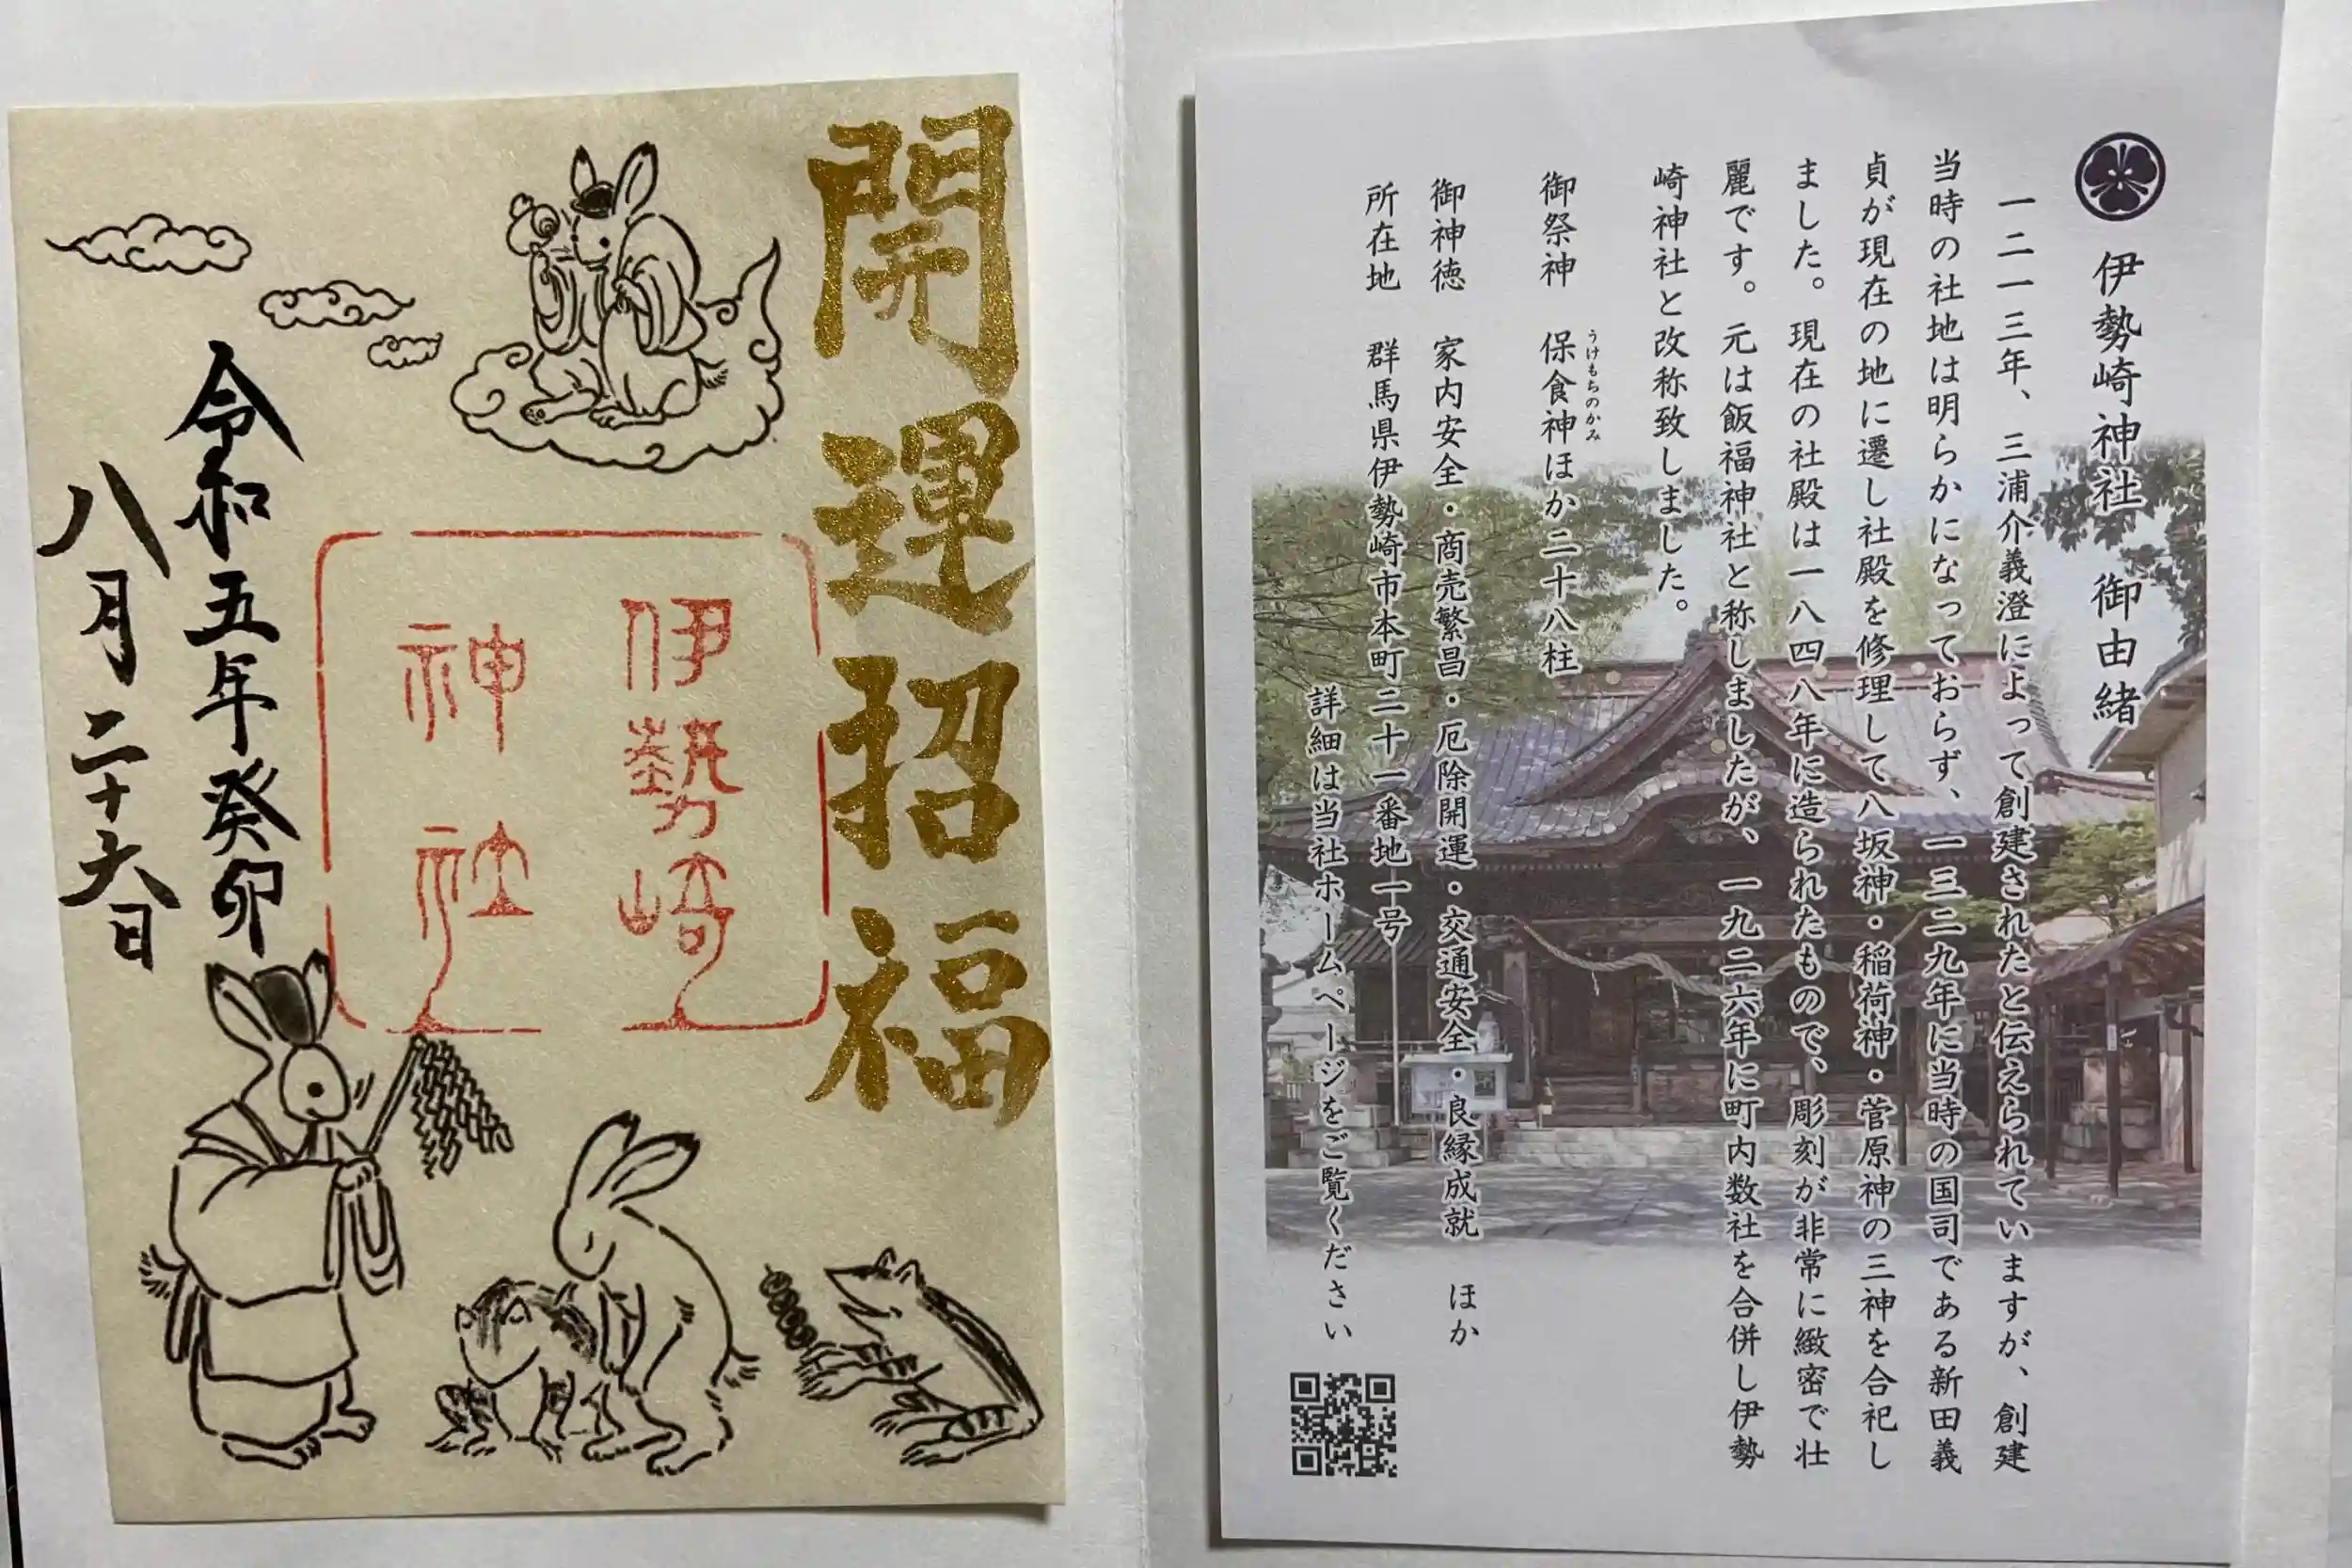 開運招福
伊勢崎
神社
令和五年癸卯
八月二十六日
伊勢崎神社 御由緒
一二一三年、三浦介義澄によって創建されたと伝えられていますが、創建
当時の社地は明らかになっておらず、一三二九年に当時の国司である新田義
貞が現在の地に遷し社殿を修理して八坂神・稲荷神・菅原神の三神を合祀し
ました。現在の社殿は一八四八年に造られたもので、彫刻が非常に緻密で壮
麗です。元は飯福神社と称しましたが、一九二六年に町内数社を合併し伊勢
崎神社と改称致しました。
御祭神 保食神ほか二十八柱
うけもちのかみ
御神徳 家内安全・商売繁昌・厄除開運・交通安全・良縁成就 ほか
所在地 群馬県伊勢崎市本町二十一番地一号
詳細は当社ホームページをご覧ください